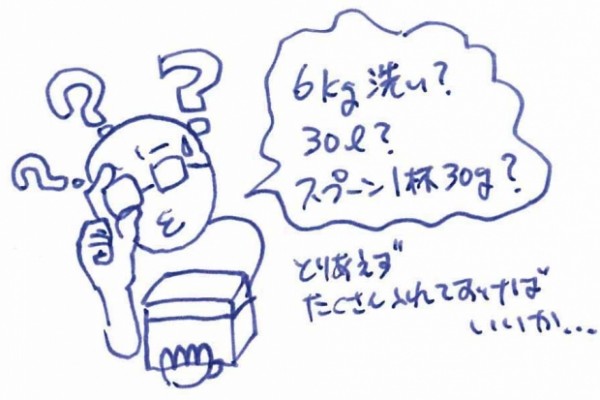 6kg洗い?
30ℓ?
スプーン1杯30g?
とりあえず
たくさん入れておけば
いいか...